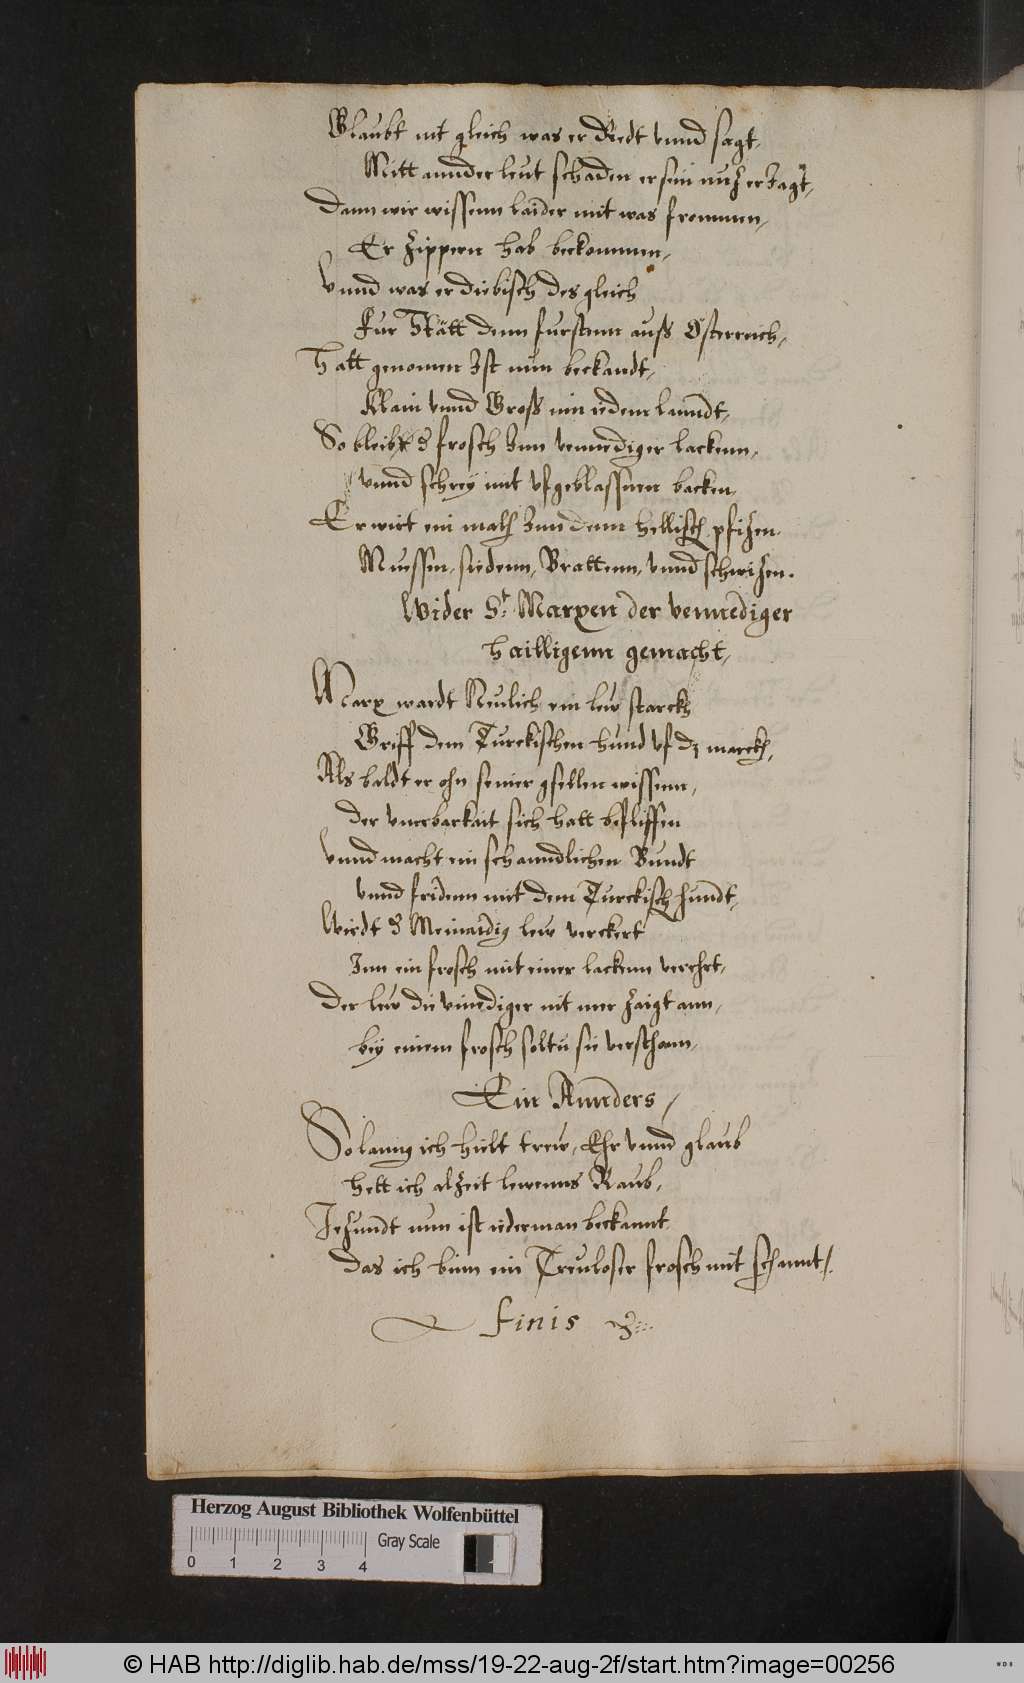 Glaubt nit gleich was er Redt vnnd sagt,
Mitt annder leut schaden er sein nuz erJagt,
Dann wir wissenn laider mit was frommen,
Er Zippern hab bekommen,
Vnnd was er diebisch des gleich
Fur Stätt denn furstenn auß Österreich,
Hatt genomen Ist nun bekandt,
Klain vnnd Groß inn iedem lanndt,
So bleibt d frosch Inn vennediger lackenn,
vnnd schrey mit vfgeblassnen backen,
Er wirt ein mahl Inn denn hellisch pfizen,
Muessen, siedenn, Brattenn, vnnd schwizen.
Wider St. Marxen der vennediger
hailligenn gemacht,
Marx wardt Neulich ein lew starckh
Griff dem Turckischen hund vf dz marckh,
Als baldt er ohn seiner gsellen wissenn,
der vnerbarkait sich hatt beflissen
Vnnd macht ein schanndlichen Bundt
vnnd fridenn mit dem Turckisch hundt,
Wirdt d Meinaidig lew verckert
Inn ein frosch mit einer lackenn verehrt,
Der lew die vinediger nit mer Zaigt ann,
bey einem frosch soltu sie versthann,
Ein Annders /
So lanng ich hielt trew, Ehr vnnd glaub
hett ich alZeit lewenns Raub,
Jezundt nun ist iederman bekannt
das ich binn ein Treuloser frosch mit schannt /.
finis
Herzog August Bibliothek Wolfenbüttel
Gray Scale
0 1 2 3 4
© HAB http://diglib.hab.de/mss/19-22-aug-2f/start.htm?image=00256